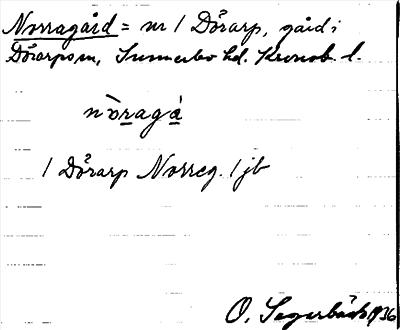 Norragård = nr 1 Dörarp, gård i
Dörarps sn, Sunnerbo hd. Kronob. l.
nòragå̀
1 Dörarp Norreg. 1 jb
O. Segerbäck 1936